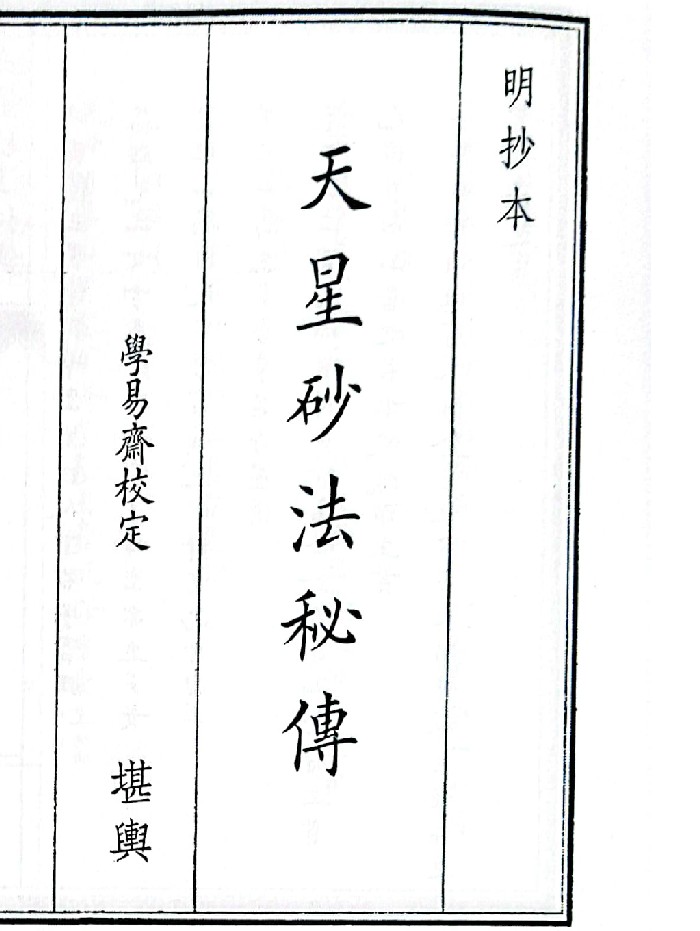 明抄本
天星砂法秘傳
學易齋校定
堪輿